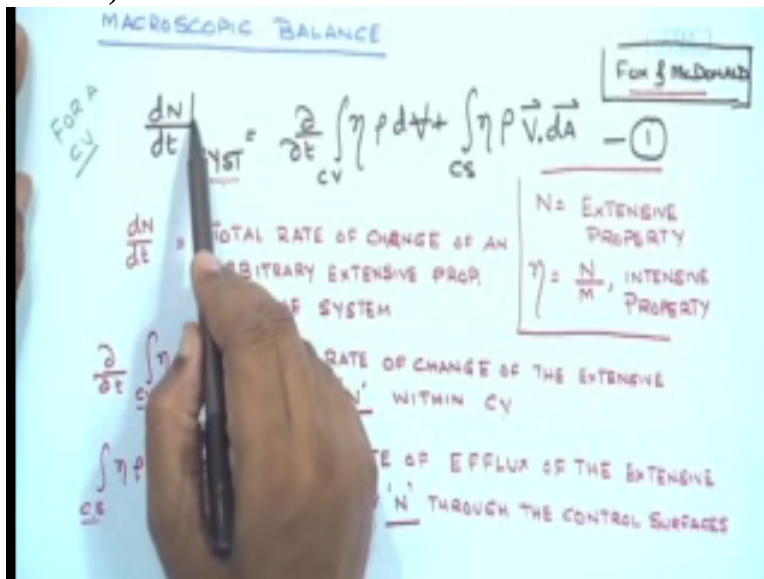 MACROSCOPIC BALANCE
FOX & McDONALD
FOR A
CV
dN/dt | SYST = ∂/∂t ∫CV η ρ d∀ + ∫CS η ρ V⃗.dA⃗ — ①
N = EXTENSIVE
PROPERTY
η = N/M, INTENSIVE
PROPERTY
dN/dt = TOTAL RATE OF CHANGE OF AN
ARBITRARY EXTENSIVE PROP.
SYSTEM
∂/∂t ∫CV η RATE OF CHANGE OF THE EXTENSIVE
'N' WITHIN CV
∫CS η ρ OF EFFLUX OF THE EXTENSIVE
'N' THROUGH THE CONTROL SURFACES